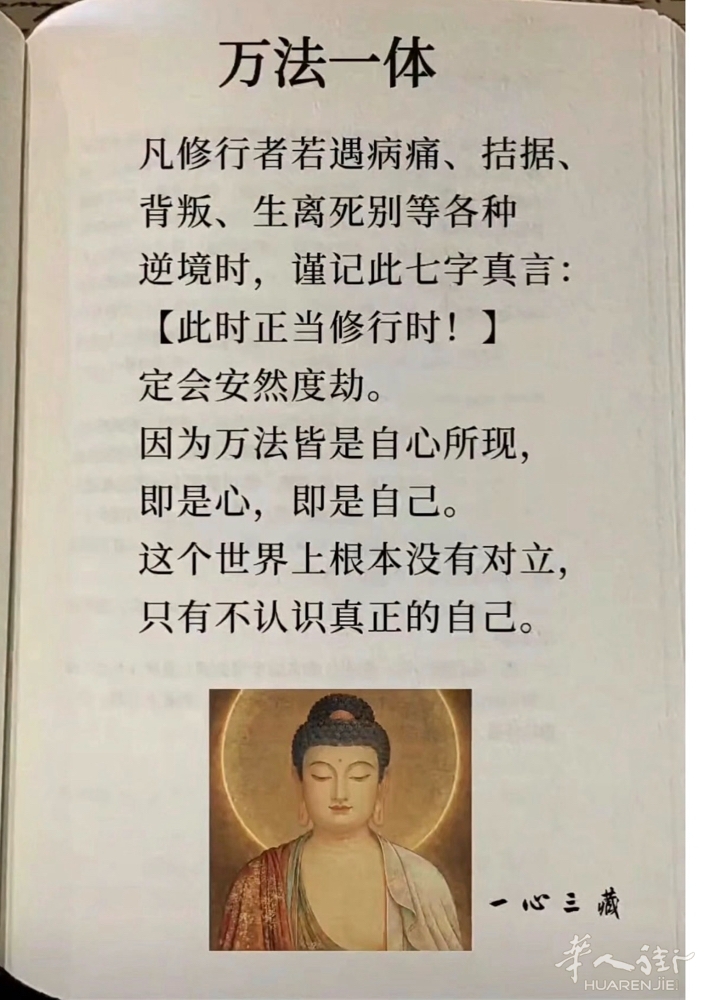 万法一体
凡修行者若遇病痛、拮据、
背叛、生离死别等各种
逆境时，谨记此七字真言：
【此时正当修行时！】
定会安然度劫。
因为万法皆是自心所现，
即是心，即是自己。
这个世界上根本没有对立，
只有不认识真正的自己。
一心三藏
华人街
HUARENJIE